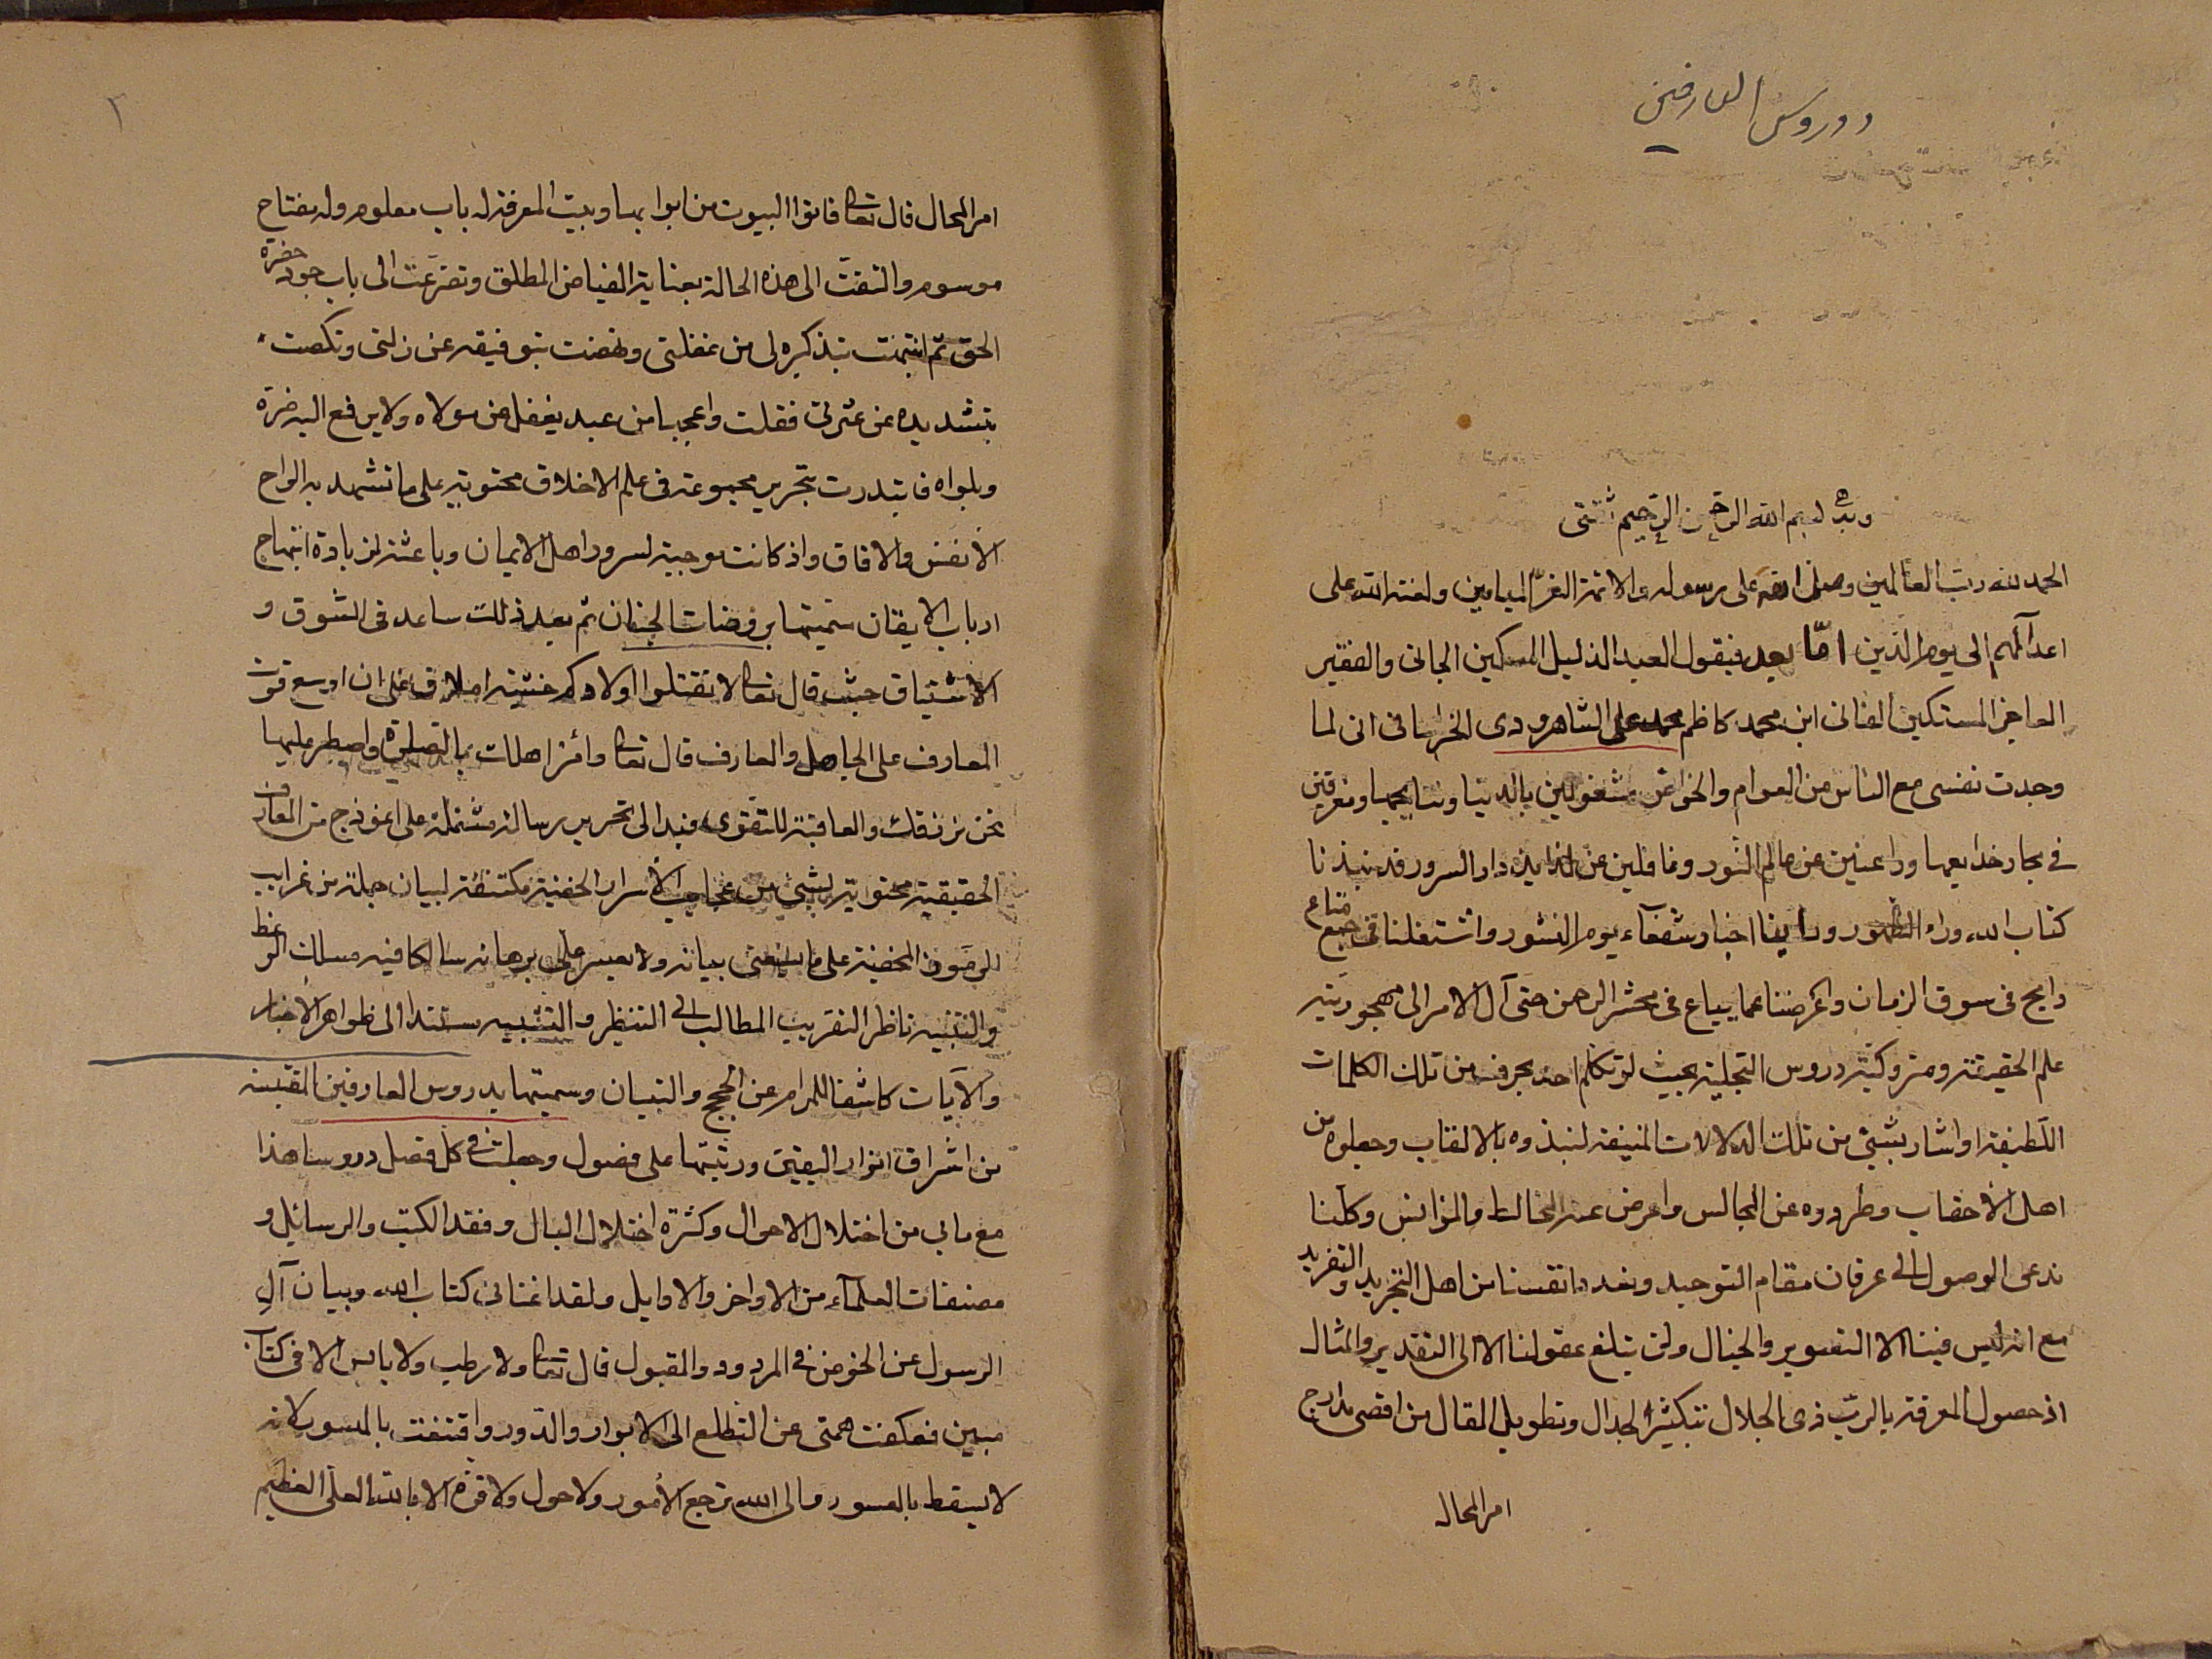 دروس العارفین
وبه بسم الله الرحمن الرحیم ثقتی
الحمد لله رب العالمین وصلی الله علی رسوله والائمة الغر المیامین ولعنة الله علی
اعدآئهم الی یوم الدین امّا بعد فیقول العبد الذلیل المسکین الجانی والفقیر
العاجز المستکین الفانی ابن محمد کاظم محمد علی الشاهرودی الخراسانی انی لما
وجدت نفسی مع الناس من العوام والخواص مشغولین بالدنیا وتابعیها ومغرقین
فی بحار خدایعها وراغبین عن عالم النور وغافلین عن لذایذ دار السرور قد نبذنا
کتاب الله ورآء الظهور وراینا اخبار شفعآء یوم النشور واشتغلنا فی جمع متاع
رایج فی سوق الزمان واعرضنا عما یباع فی محشر الرحمن حتی آل الامر الی مهجوریة
علم الحقیقة ومتروکیّة دروس التجلیة بحیث لو تکلم احد بحرف من تلک الکلمات
اللطیفة او اشار بشیئ من تلک الدلالات المنیفة لنبذوه بالالقاب وجعلوه من
اهل الاحقاب وطردوه عن المجالس واعرض عنه المخالط والموانس وکلّنا
ندعی الوصول الی عرفان مقام التوحید ونعد انفسنا من اهل التجرید والتفرید
مع انه لیس فینا الا التصویر والخیال ولن یبلغ عقولنا الا الی التقدیر والمثال
اذ حصول المعرفة بالربّ ذی الجلال بتکثیر الجدال وتطویل المقال من اقصی مدارج
امر المحال
٢
امر المحال قال تعالی فاتوا البیوت من ابوابها وبیت المعرفة له باب معلوم وله مفتاح
موسوم والتفتّ الی هذه الحالة بعنایة الفیاض المطلق وتضرّعت الی باب جود حضرة
الحق ثم انتبهت بتذکیره لی من غفلتی ونهضت بتوفیقه عن زلتی ونکصت
بتشدیده عن عثرتی فقلت واعجبا من عبد یغفل عن مولاه ولا یرفع الیه ضرّه
وبلواه فابتدرت بتحریر مجموعة فی علم الاخلاق محتویة علی ما تشهد به الواح
الانفس والافاق واذ کانت موجبة لسرور اهل الایمان وباعثة لزیادة ابتهاج
ارباب الایقان سمّیتها بروضات الجنان ثم بعد ذلک ساعدنی الشوق و
الاشتیاق حیث قال تعالی لا تقتلوا اولادکم خشیة املاق علی ان اوسع قوت
المعارف علی الجاهل والعارف قال تعالی وأمر اهلک بالصلوة واصطبر علیها
نحن نرزقک والعاقبة للتقوی فبدا لی تحریر رسالة مشتملة علی انموذج من المعارف
الحقیقیة محتویة بشیئ من عجایب الاسرار الخفیة مکتنفة لبیان جملة من غرایب
الرموز المخفیة علی ما ینبغی بیانه ولا یعسر علی برهانه سالکا فیه مسالک الوعظ
والتنبیه ناظرا لتقریب المطالب الی التنظیر والتشبیه مستندا الی ظواهر الاخبار
والآیات کاشفا للمرام عن الحجج والتبیان وسمیتها بدروس العارفین المقتبسة
من اشراق انوار الیقین ورتبتها علی فصول وجعلت فی کل فصل دروسا هذا
مع ما بی من اختلال الاحوال وکثرة اختلال البال وفقد الکتب والرسائل و
مصنفات العلمآء من الاواخر والاوایل ولقد اغنانی کتاب الله وبیان آل
الرسول عن الخوض فی المردود والمقبول قال تعالی ولا رطب ولا یابس الا فی کتاب
مبین فعکفت همتی عن التطلع الی الابواب والدور واقتنعت بالمیسور لانه
لا یسقط بالمعسور والی الله ترجع الامور ولا حول ولا قوة الا بالله العلی العظیم